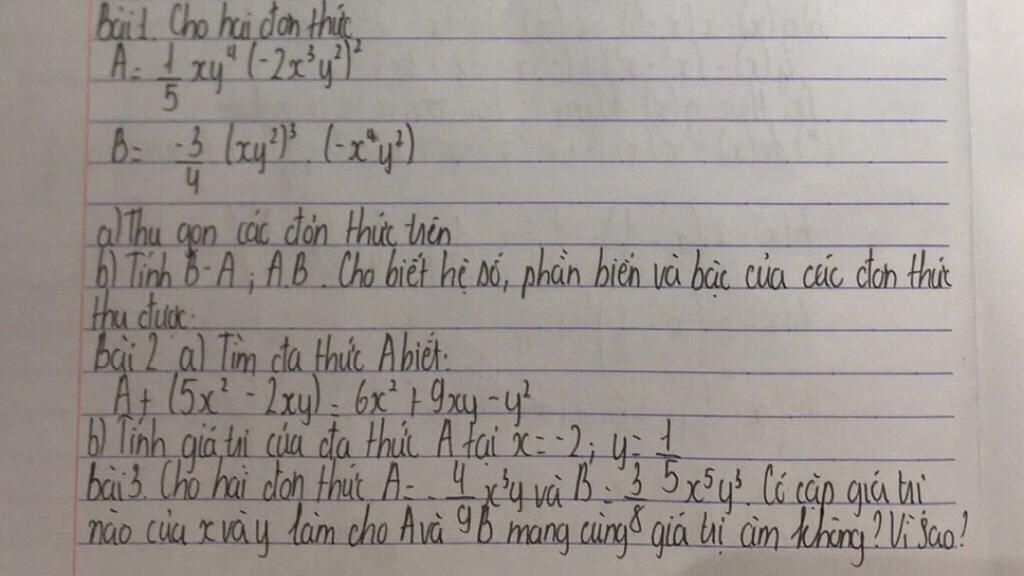 Bài 1. Cho hai đơn thức
A = 1/5 xy⁴ (-2x³y²)²
B = -3/4 (xy²)³ . (-x⁴y²)
a) Thu gọn các đơn thức trên
b) Tính B-A ; A.B. Cho biết hệ số, phần biến và bậc của các đơn thức
thu được.
bài 2 a) Tìm đa thức A biết:
A + (5x² - 2xy) = 6x² + 9xy - y²
b) Tính giá trị của đa thức A tại x = -2 ; y = 1/5
bài 3. Cho hai đơn thức A = -4/9 x³y và B = 3/8 x⁵y³. Có cặp giá trị
nào của x và y làm cho A và B mang cùng giá trị âm không? Vì sao?